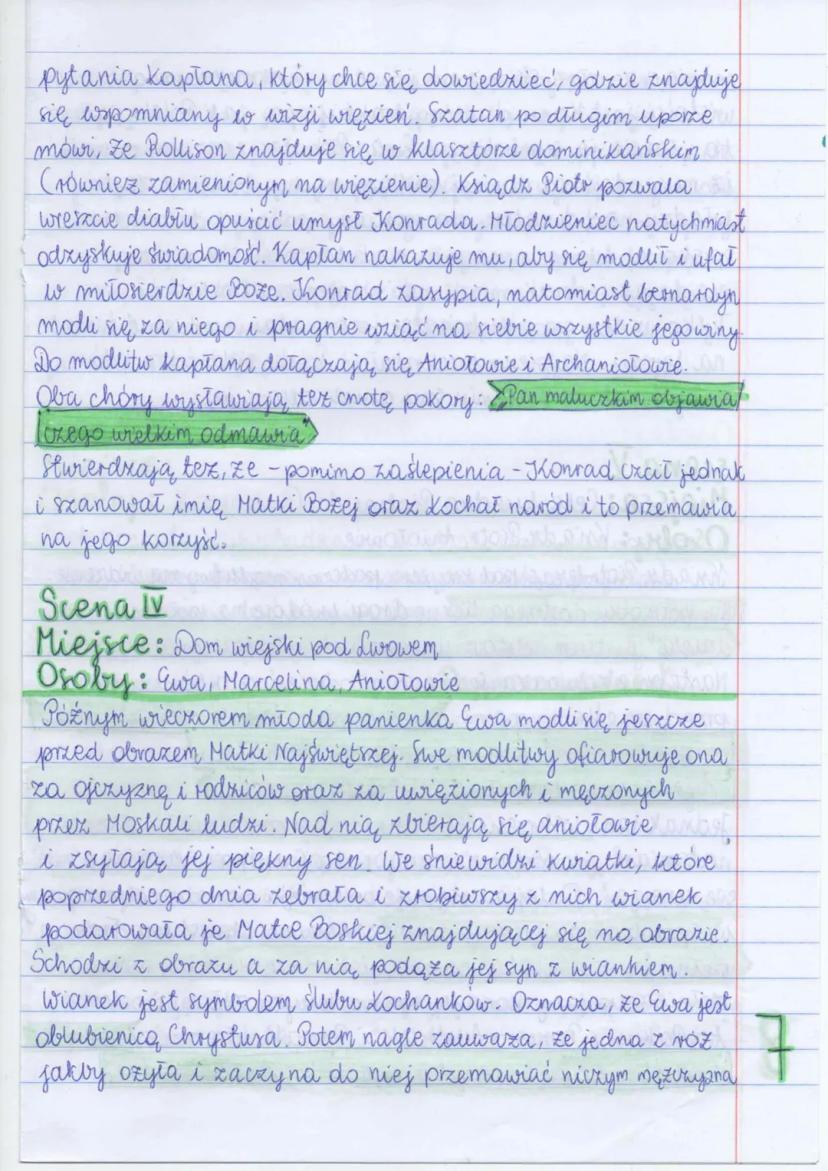 pytania kapłana, który chce się dowiedzieć, gdzie znajduje
się wspomniany w wizji więzień. Szatan po długim uporze
mówi, że Rollison znajduje się w klasztorze dominikańskim
(również zamienionym na więzienie). Ksiądz Piotr pozwala
wreszcie diabłu opuścić umysł Konrada. Młodzieniec natychmiast
odzyskuje świadomość. Kapłan nakazuje mu, aby się modlił i ufał
w miłosierdzie Boże. Konrad zasypia, natomiast bernardyn
modli się za niego i pragnie wziąć na siebie wszystkie jego winy.
Do modlitw kapłana dołączają się Aniołowie i Archaniołowie.
Oba chóry wysławiają też cnotę pokory: „Pan maluczkim objawia
czego wielkim odmawia"
Stwierdzają też, że - pomimo zaślepienia - Konrad czcił jednak
i szanował imię Matki Bożej oraz kochał naród i to przemawia
na jego korzyść.
Scena IV
Miejsce: Dom wiejski pod Lwowem
Osoby: Ewa, Marcelina, Aniołowie
Późnym wieczorem młoda panienka Ewa modli się jeszcze
przed obrazem Matki Najświętszej. Swe modlitwy ofiarowuje ona
za ojczyznę i rodziców oraz za uwięzionych i męczonych
przez Moskali ludzi. Nad nią zbierają się aniołowie
i zsyłają jej piękny sen. We śnie widzi kwiatki, które
poprzedniego dnia zebrała i zrobiwszy z nich wianek
podarowała je Matce Boskiej znajdującej się na obrazie.
Schodzi z obrazu a za nią podąża jej syn z wiankiem.
Wianek jest symbolem ślubu kochanków. Oznacza, że Ewa jest
oblubienicą Chrystusa. Potem nagle zauważa, że jedna z róż
jakby ożyła i zaczyna do niej przemawiać niczym mężczyzna
7